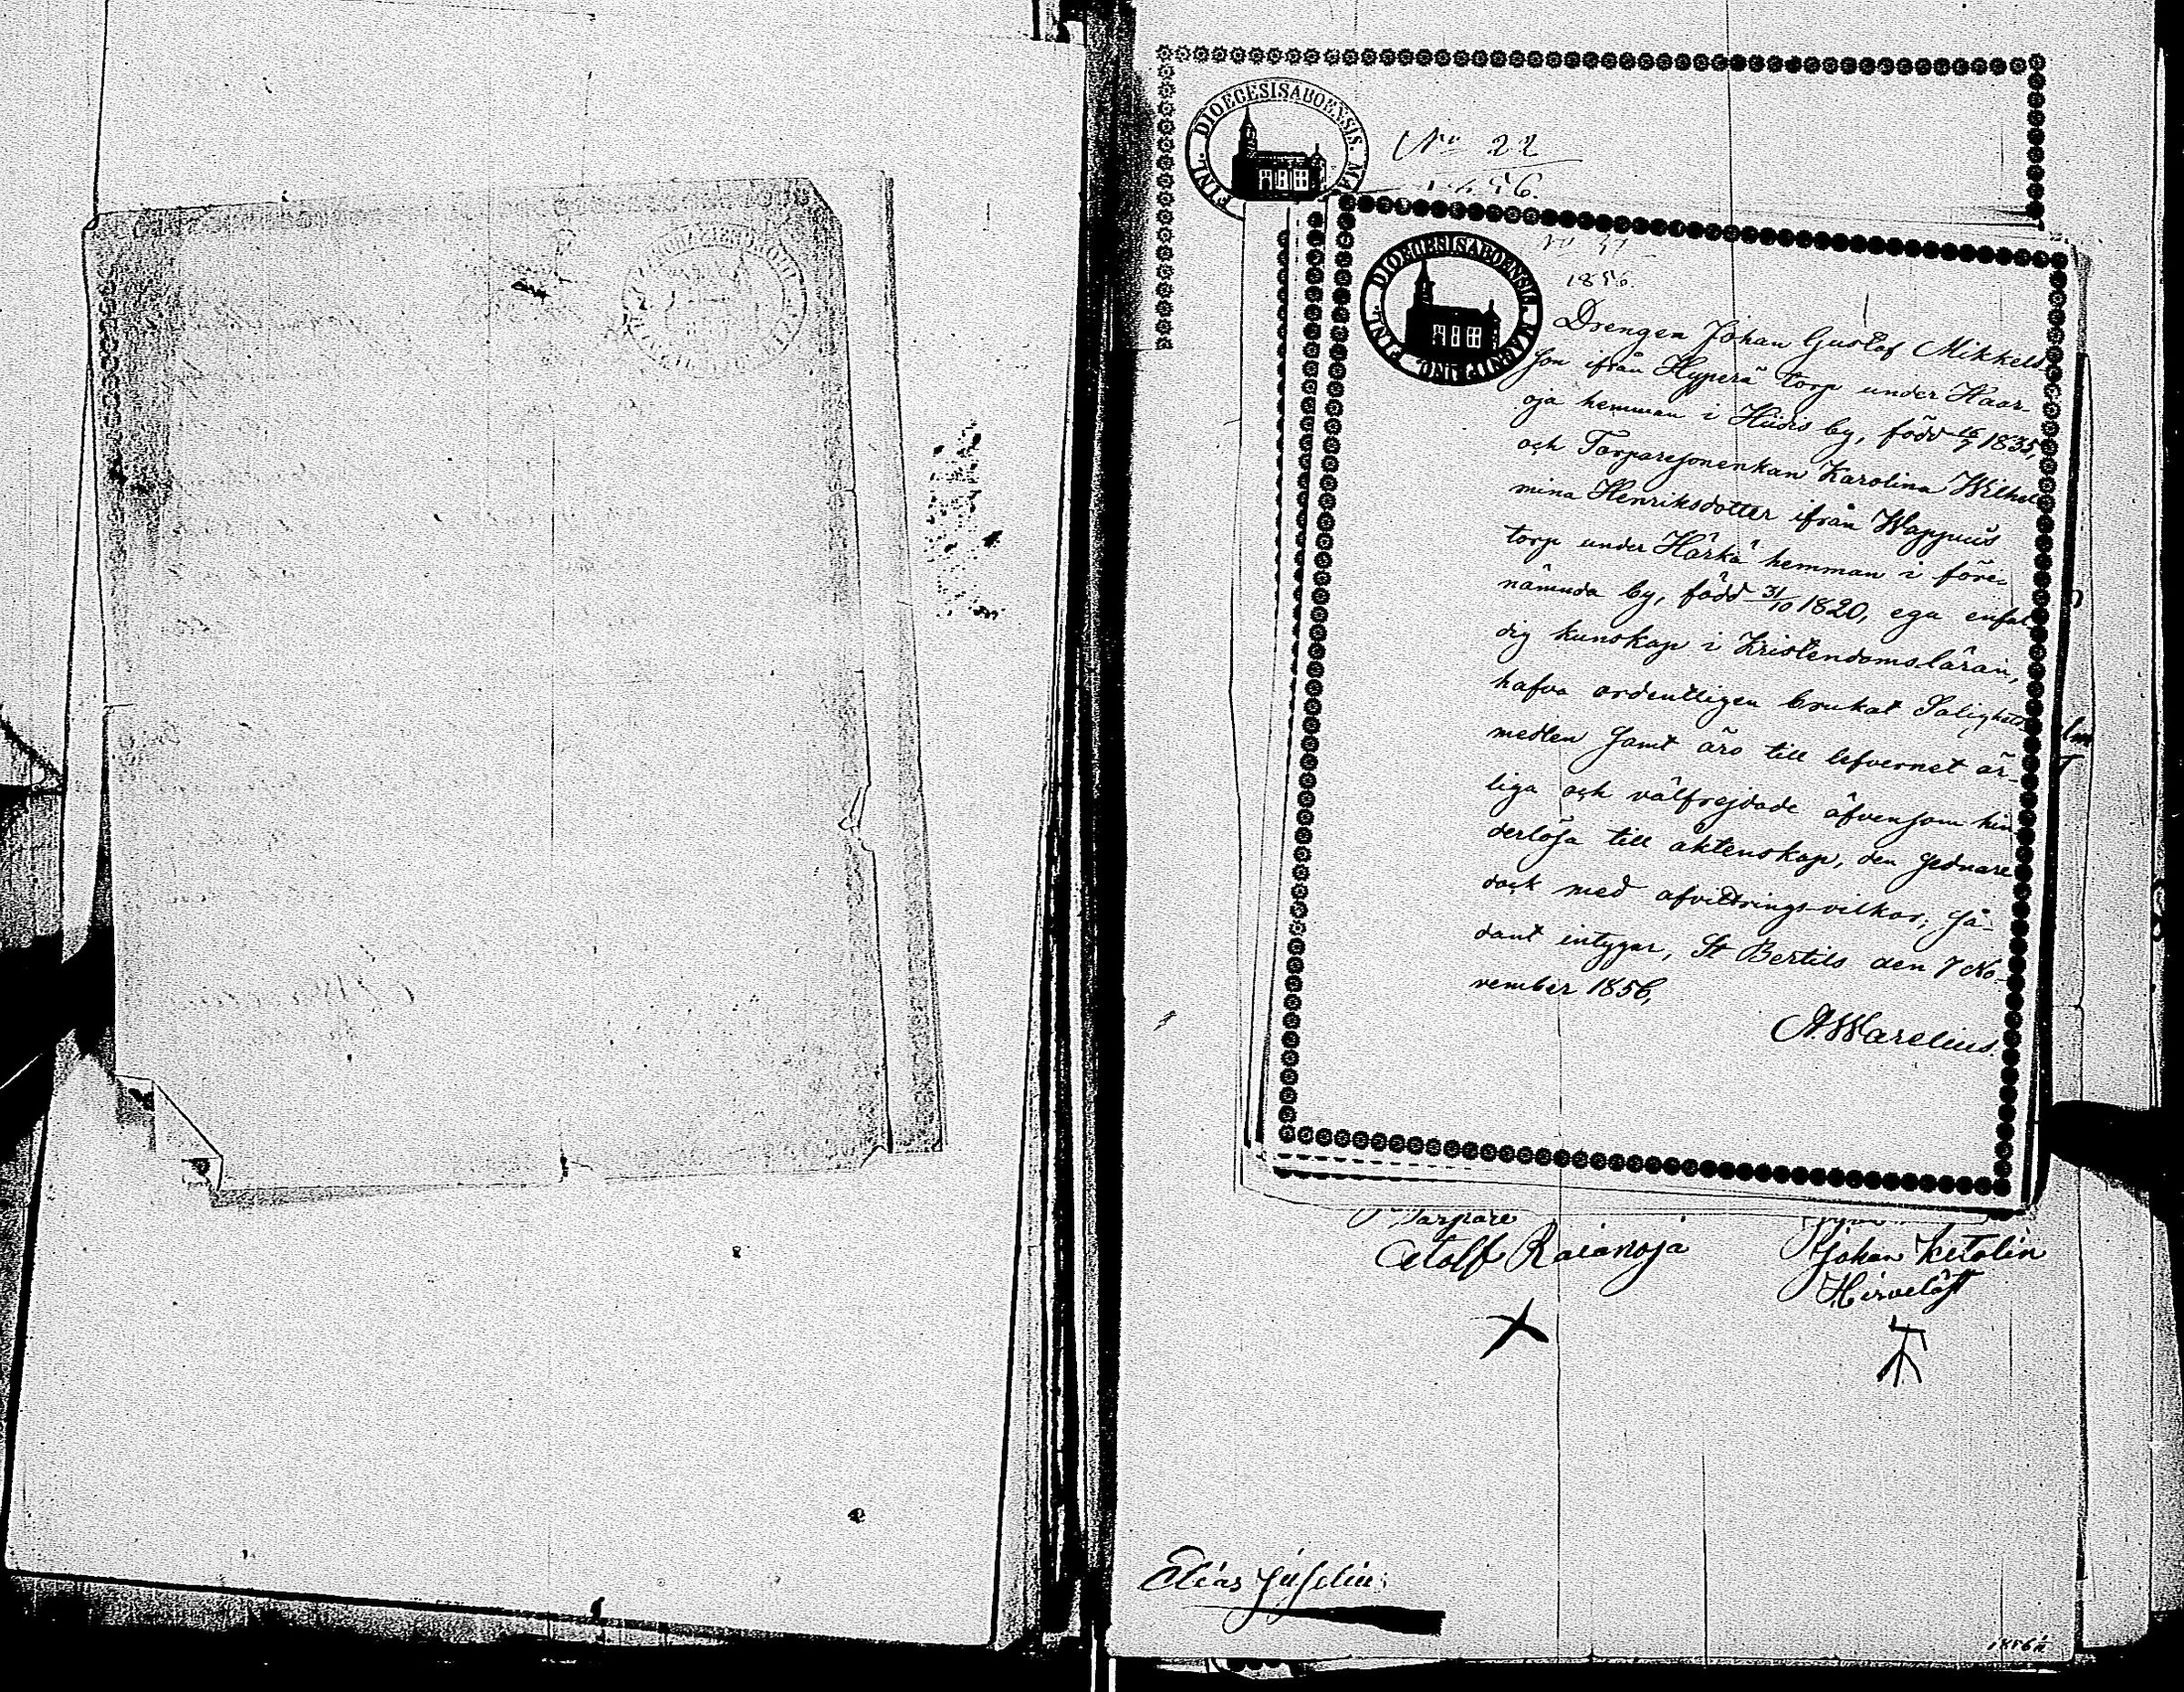 DIOECESIS ABOENSIS. MA
FINL.
No 22
1856.
DIOECESIS ABOENSIS. MAGNI DUC. FINL.
No 37
1856.
Drengen Johan Gustaf Mikkels
son ifrån Hyperä torp under Haar-
oja hemman i Hiidis by, född 16/7 1835,
och Torparesonenkan Karolina Wilhel
mina Henriksdotter ifrån Wappuus
torp under Härkä hemman i före-
nämnda by, född 31/10 1820, ega enfal
dig kunskap i Kristendomsläran,
hafva ordentligen brukat Salighets
medlen samt äro till lefvernet är-
liga och välfrejdade äfvensom hin
derlösa till äktenskap, den sednare
dock med afvittrings-vilkor; så-
dant intygar, St Bertils den 7 No-
vember 1856,
A. Warelius.
Torpare
Adolf Raianoja
Johan Ketolin
Hirvelöft
Elias
1856